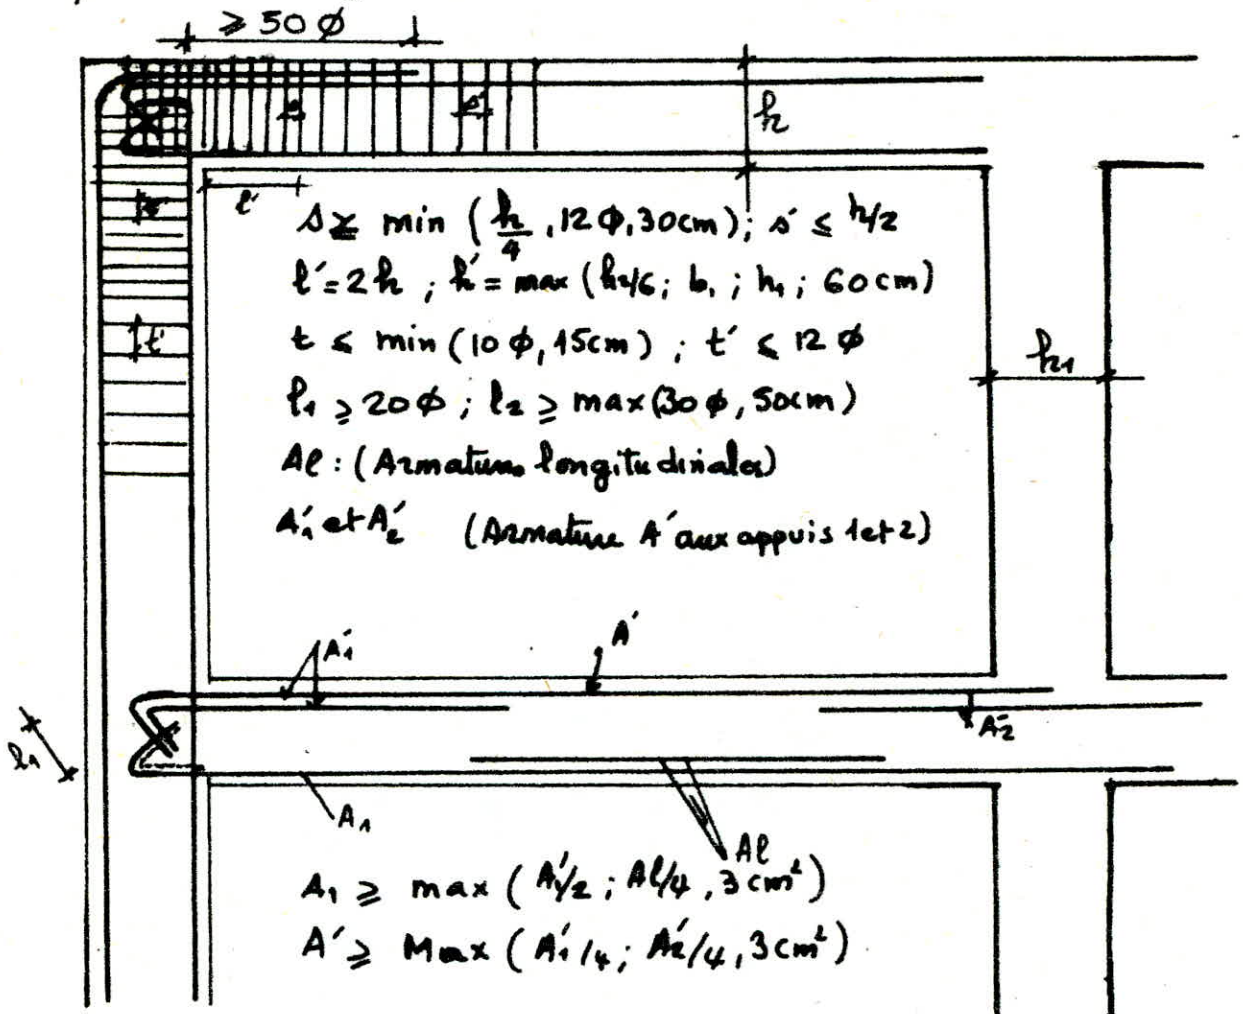 ≥ 50 φ
h
s
s'
l'
t
s ≤ min (h/4, 12 φ, 30cm); s' ≤ h/2
l' = 2h ; h' = max (h/6; b1 ; h1 ; 60cm)
t'
t ≤ min (10 φ, 15cm) ; t' ≤ 12 φ
h1
l1 ≥ 20φ ; l2 ≥ max(30 φ, 50cm)
Al : (Armatures longitudinales)
A'1 et A'2 (Armature A' aux appuis 1et2)
A'1
A'
A'2
l1
A1
Al
A1 ≥ max (A'1/2 ; Al/4, 3cm²)
A' ≥ Max (A'1/4; A'2/4, 3cm²)